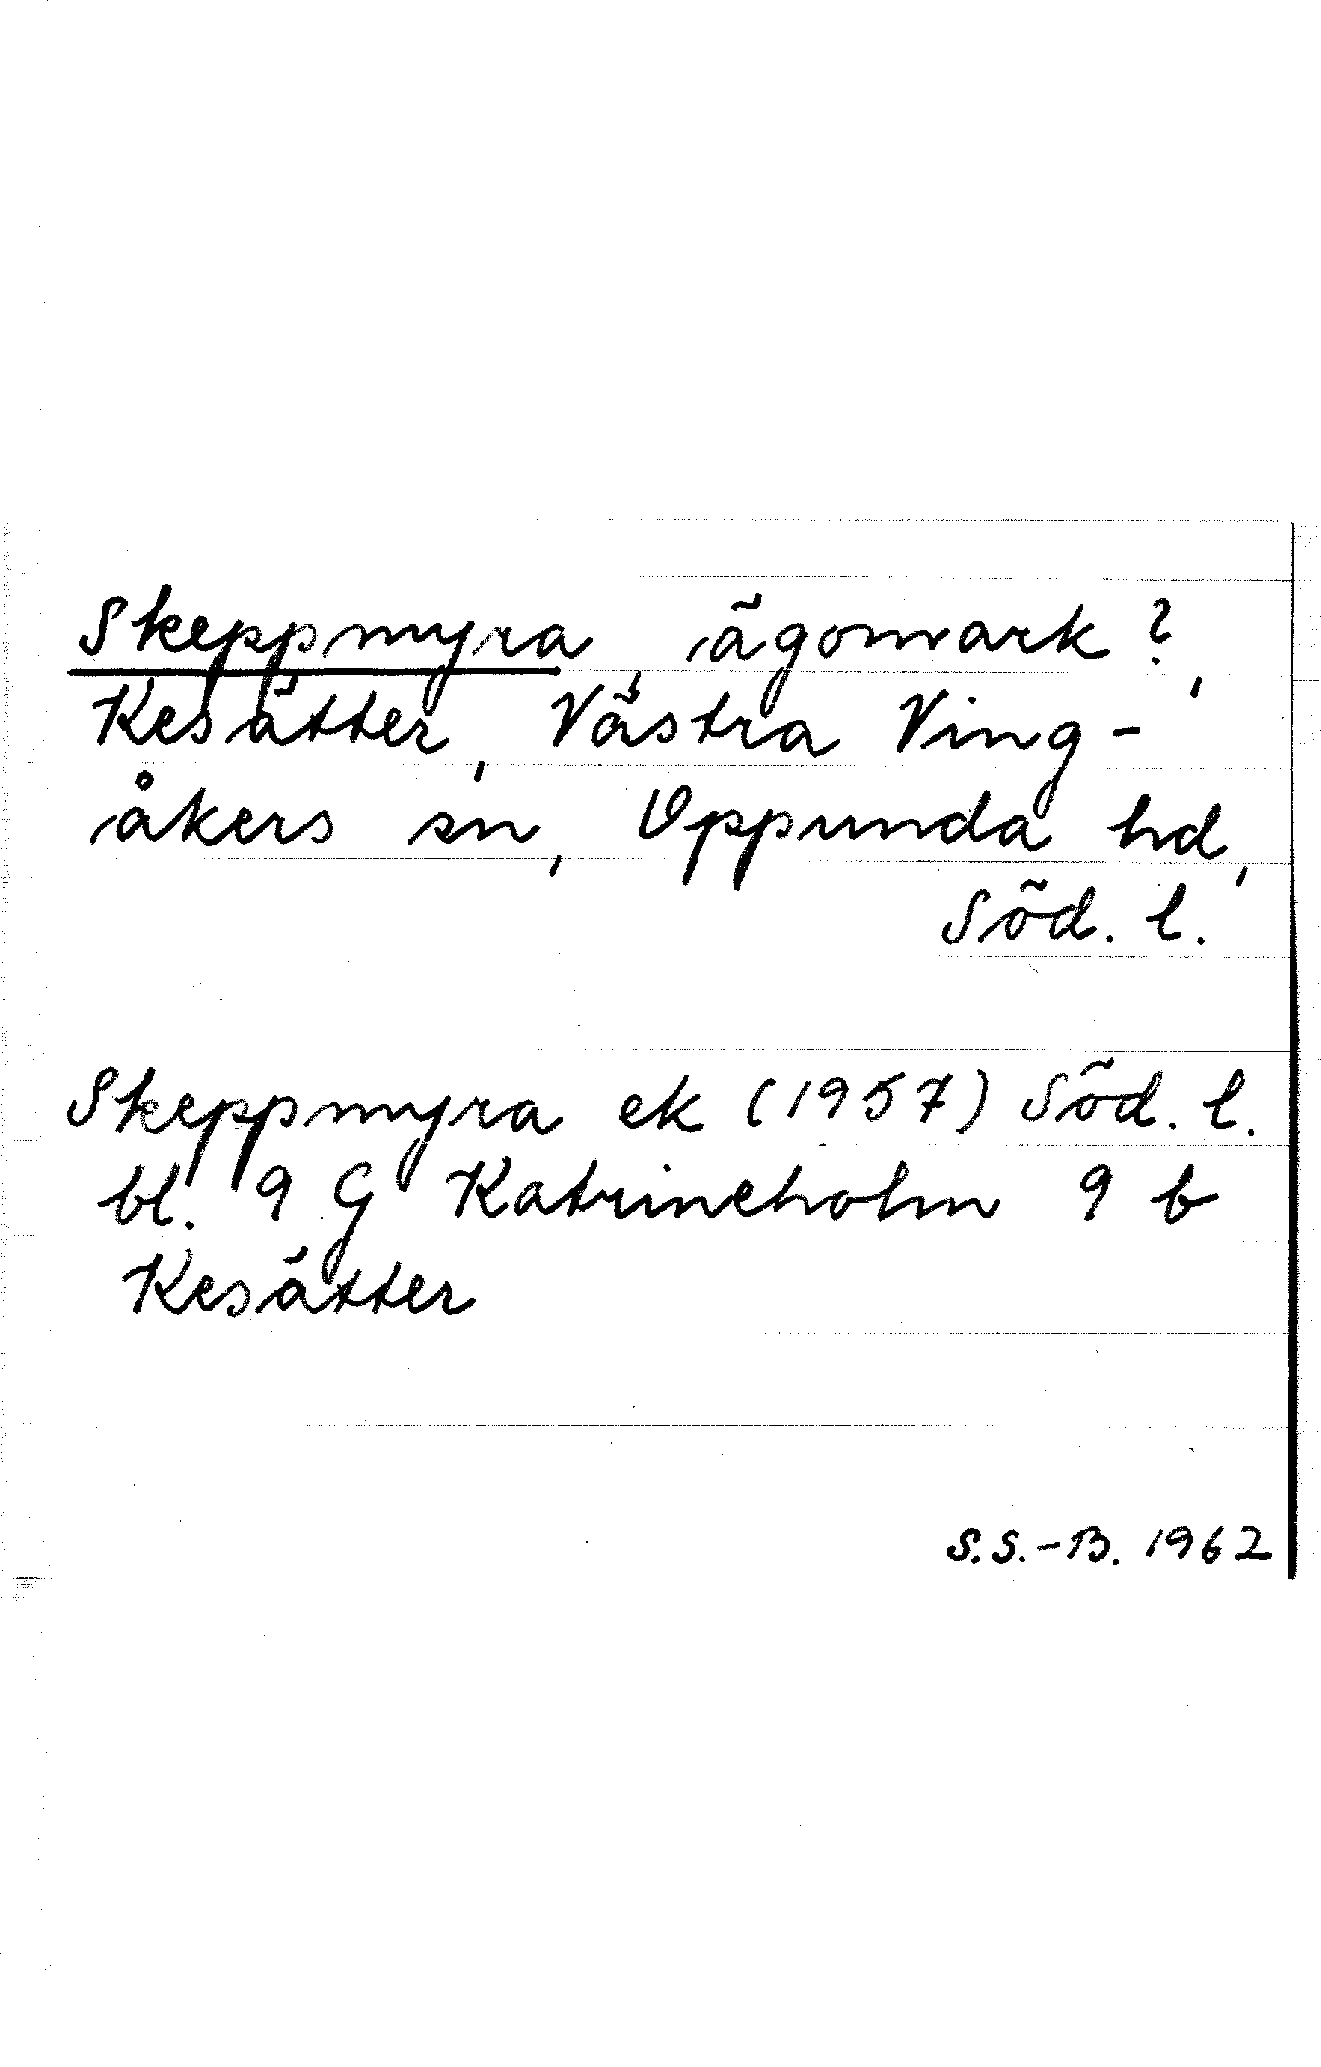 Skeppmyra, ägomark?,
Kesätter, Västra Ving-
åkers sn, Oppunda hd,
Söd. l.
Skeppmyra ek (1957) Söd. l.
bl. 9 G Katrineholm 9 b
Kesätter
S.S.-B. 1962